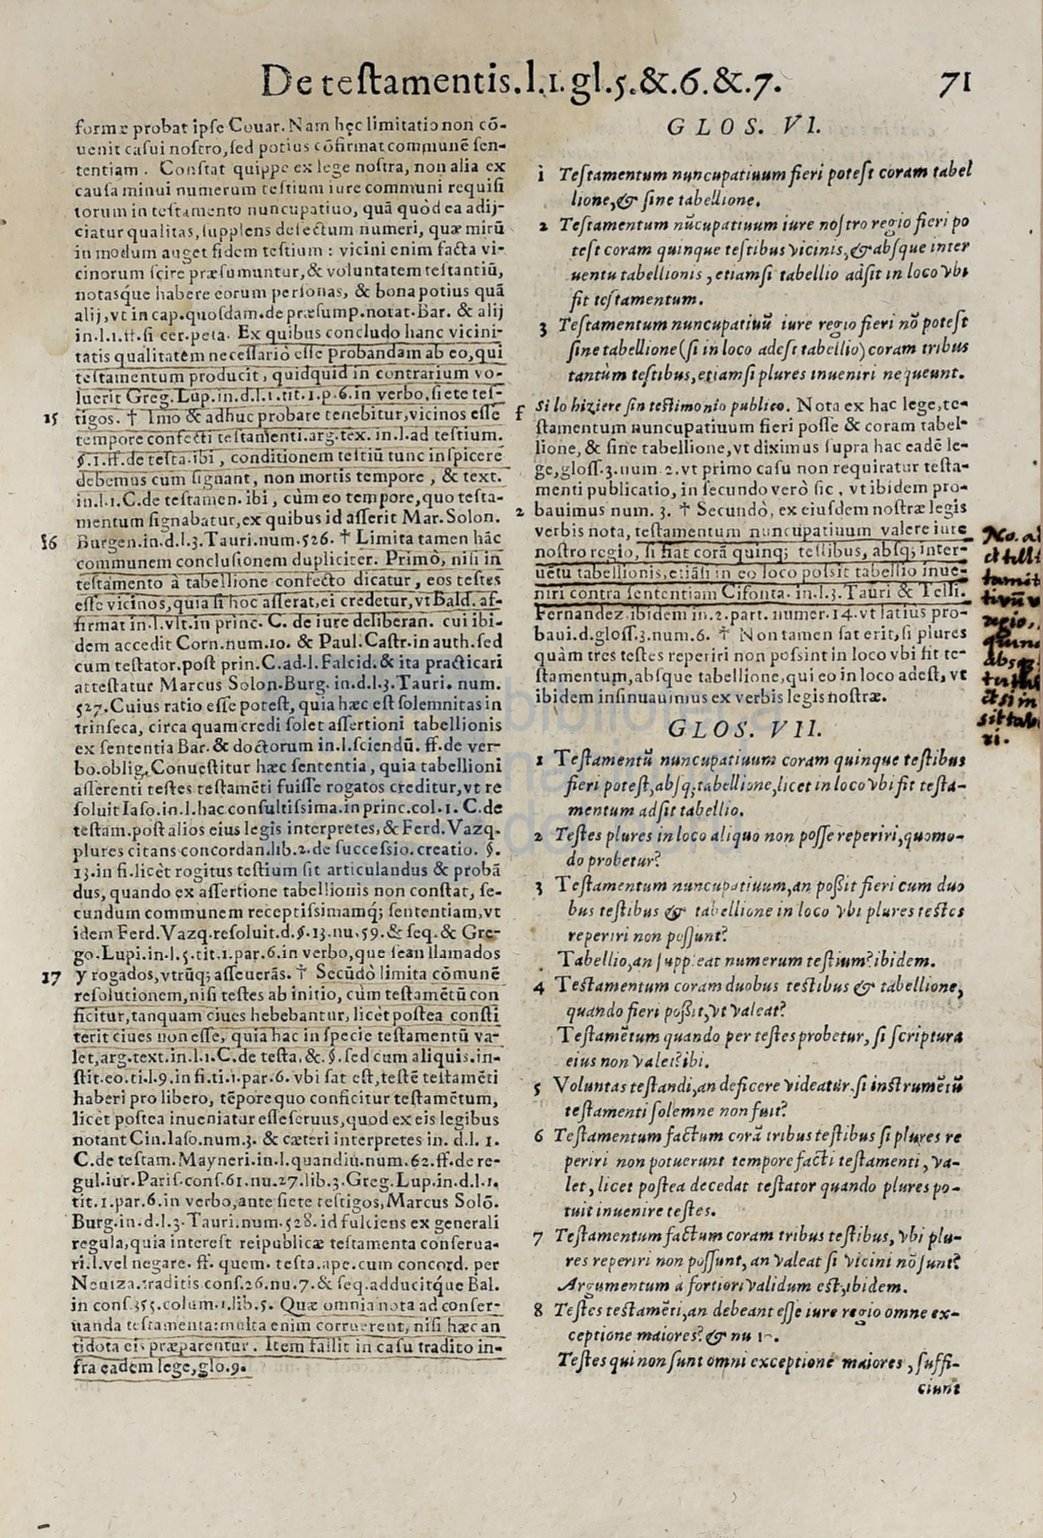 De testamentis.l.1.gl.5.&.6.&.7. 71
formæ probat ipse Couar. Nam hęc limitatio non cō-
uenit casui nostro, sed potius cōfirmat communē sen-
tentiam. Constat quippe ex lege nostra, non alia ex
causa minui numerum testium iure communi requisi
torum in testamento nuncupatiuo, quā quòd ea adij-
ciatur qualitas, supplens defectum numeri, quæ mirū
in modum auget fidem testium: vicini enim facta vi-
cinorum scire præsumuntur, & voluntatem testantiū,
notasq́ue habere eorum personas, & bona potius quā
alij, vt in cap. quosdam. de præsump. notat. Bar. & alij
in.l.1.ff. si cer. peta. Ex quibus concludo hanc vicini-
tatis qualitatem necessariò esse probandam ab eo, qui
testamentum producit, quidquid in contrarium vo-
luerit Greg. Lup. in.d.l.1.tit.1.p.6. in verbo, siete tes-
15 tigos. † Imò & adhuc probare tenebitur, vicinos esse
tempore confecti testamenti. arg. tex. in.l. ad testium.
§.1.ff. de testa. ibi, conditionem testiū tunc inspicere
debemus cum signant, non mortis tempore, & text.
in.l.1.C. de testamen. ibi, cùm eo tempore, quo testa-
mentum signabatur, ex quibus id asserit Mar. Solon.
16 Burgen. in.d.l.3. Tauri. num. 526. † Limita tamen hāc
communem conclusionem dupliciter. Primò, nisi in
testamento à tabellione confecto dicatur, eos testes
esse vicinos, quia si hoc asserat, ei credetur, vt Bald. af-
firmat in.l. vlt. in princ. C. de iure deliberan. cui ibi-
dem accedit Corn. num. 10. & Paul. Castr. in auth. sed
cum testator. post prin. C. ad.l. Falcid. & ita practicari
attestatur Marcus Solon. Burg. in.d.l.3. Tauri. num.
527. Cuius ratio esse potest, quia hæc est solemnitas in
trinseca, circa quam credi solet assertioni tabellionis
ex sententia Bar. & doctorum in.l. sciendū. ff. de ver-
bo. oblig. Conuestitur hæc sententia, quia tabellioni
asserenti testes testamēti fuisse rogatos creditur, vt re
soluit Iaso. in.l. hac consultissima. in princ. col. 1. C. de
testam. post alios eius legis interpretes, & Ferd. Vazq.
plures citans concordan. lib. 2. de successio. creatio. §.
13. in fi. licèt rogitus testium sit articulandus & probā
dus, quando ex assertione tabellionis non constat, se-
cundum communem receptissimamq́; sententiam, vt
idem Ferd. Vazq. resoluit. d. §. 13. nu. 59. & seq. & Gre-
go. Lupi. in.l.5.tit.1.par.6. in verbo, que sean llamados
17 y rogados, vtrūq; asseuerās. † Secūdò limita cōmunē
resolutionem, nisi testes ab initio, cùm testamētū con
ficitur, tanquam ciues hebebantur, licèt postea consti
terit ciues non esse, quia hac in specie testamentū va-
let, arg. text. in.l.1.C. de testa. &. §. sed cum aliquis. in-
stit. eo. ti.l.9. in fi.ti.1.par.6. vbi sat est, testē testamēti
haberi pro libero, tēpore quo conficitur testamētum,
licèt postea inueniatur esse seruus, quod ex eis legibus
notant Cin. Iaso. num. 3. & cæteri interpretes in. d.l. 1.
C. de testam. Mayneri. in.l. quandiu. num. 62. ff. de re-
gul. iur. Paris. cons. 61. nu. 27. lib. 3. Greg. Lup. in.d.l.1.
tit.1.par.6. in verbo, ante siete testigos, Marcus Solō.
Burg. in.d.l.3. Tauri. num. 528. id fulciens ex generali
regula, quia interest reipublicæ testamenta conserua-
ri.l. vel negare. ff. quem. testa. ape. cum concord. per
Neuiza. traditis cons. 26. nu. 7. & seq. adducitq́ue Bal.
in cons. 355. colum. 1. lib. 5. Quæ omnia nota ad conser-
uanda testamenta: multa enim corruerent, nisi hæc an
tidota eis præparentur. Item fallit in casu tradito in-
fra eadem lege, glo. 9.
GLOS. VI.
1 Testamentum nuncupatiuum fieri potest coram tabel
lione, & sine tabellione.
2 Testamentum nūcupatiuum iure nostro regio fieri po
test coram quinque testibus vicinis, & absque inter
uentu tabellionis, etiamsi tabellio adsit in loco vbi
fit testamentum.
3 Testamentum nuncupatiuū iure regio fieri nō potest
sine tabellione (si in loco adest tabellio) coram tribus
tantùm testibus, etiamsi plures inueniri nequeunt.
f Si lo hiziere sin testimonio publico. Nota ex hac lege, te-
stamentum nuncupatiuum fieri posse & coram tabel-
lione, & sine tabellione, vt diximus supra hac eadē le-
ge, gloss. 3. num. 2. vt primo casu non requiratur testa-
menti publicatio, in secundo verò sic, vt ibidem pro-
2 bauimus num. 3. † Secundò, ex eiusdem nostræ legis
verbis nota, testamentum nuncupatiuum valere iure
nostro regio, si fiat corā quinq; testibus, absq; inter-
uētu tabellionis, etiāsi in eo loco possit tabellio inue-
niri contra sententiam Cifonta. in.l.3. Tauri & Telli.
Fernandez. ibidem in. 2. part. numer. 14. vt latius pro-
baui. d. gloss. 3. num. 6. † Non tamen sat erit, si plures
quàm tres testes reperiri non possint in loco vbi fit te-
stamentum, absque tabellione, qui eo in loco adest, vt
ibidem insinuauimus ex verbis legis nostræ.
GLOS. VII.
1 Testamentū nuncupatiuum coram quinque testibus
fieri potest, absq; tabellione, licet in loco vbi fit testa-
mentum adsit tabellio.
2 Testes plures in loco aliquo non posse reperiri, quomo-
do probetur?
3 Testamentum nuncupatiuum, an possit fieri cum duo
bus testibus & tabellione in loco vbi plures testes
reperiri non possunt?
Tabellio, an suppleat numerum testium? ibidem.
4 Testamentum coram duobus testibus & tabellione,
quando fieri possit, vt valeat?
Testamētum quando per testes probetur, si scriptura
eius non valet? ibi.
5 Voluntas testandi, an deficere videatur, si instrumētū
testamenti solemne non fuit?
6 Testamentum factum corā tribus testibus si plures re
periri non potuerunt tempore facti testamenti, va-
let, licet postea decedat testator quando plures po-
tuit inuenire testes.
7 Testamentum factum coram tribus testibus, vbi plu-
res reperiri non possunt, an valeat si vicini nō sunt?
Argumentum à fortiori validum est, ibidem.
8 Testes testamēti, an debeant esse iure regio omne ex-
ceptione maiores? & nu
Testes qui non sunt omni exceptione maiores, suffi-
ciunt